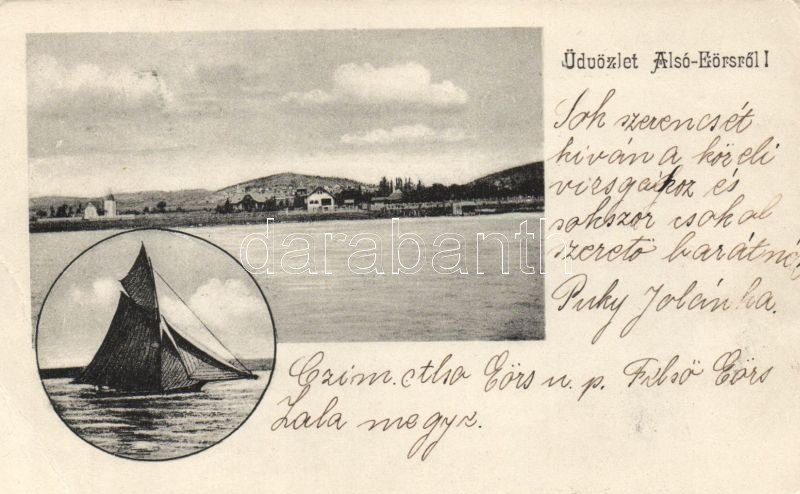 Üdvözlet Alsó-Eörsről!
Sok szerencsét
kiván a közeli
vizsgákhoz és
sokszor csókol
szerető barátnéd
Puky Jolánka.
Czim. Alsó Eörs u. p. Felső Eörs
Zala megye.
darabanth.com